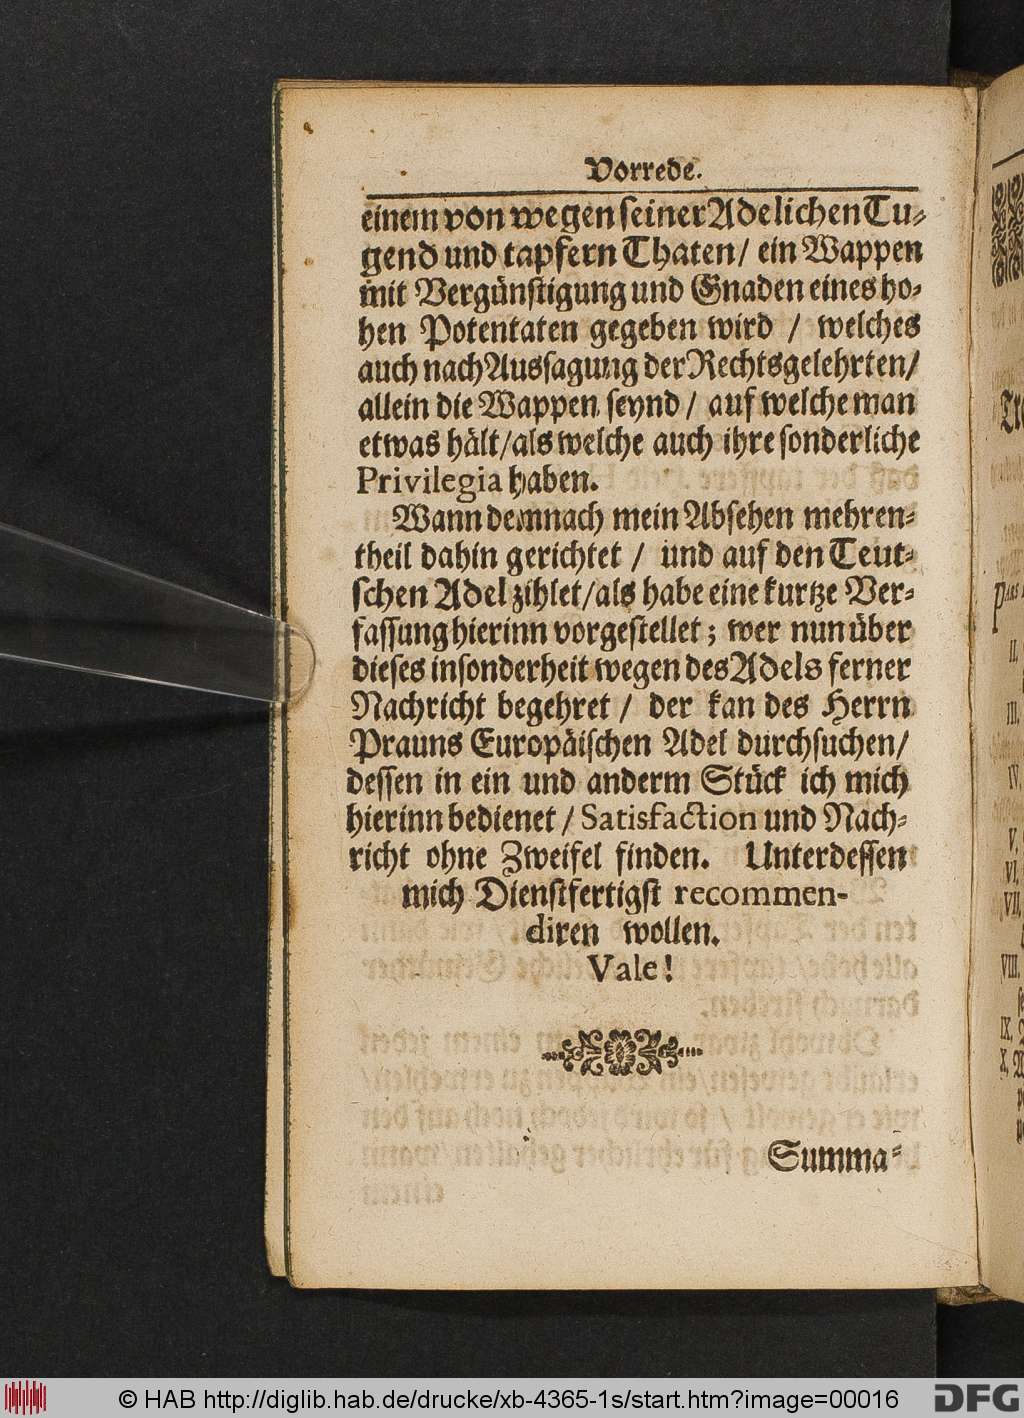 Vorrede.
einem von wegen seiner Adelichen Tu-
gend und tapfern Thaten/ ein Wappen
mit Vergünstigung und Gnaden eines ho-
hen Potentaten gegeben wird / welches
auch nach Aussagung der Rechtsgelehrten/
allein die Wappen seynd / auf welche man
etwas hält/als welche auch ihre sonderliche
Privilegia haben.
Wann demnach mein Absehen mehren-
theil dahin gerichtet / und auf den Teut-
schen Adel zihlet/als habe eine kurtze Ver-
fassung hierinn vorgestellet; wer nun über
dieses insonderheit wegen des Adels ferner
Nachricht begehret / der kan des Herrn
Prauns Europäischen Adel durchsuchen/
dessen in ein und anderm Stück ich mich
hierinn bedienet / Satisfaction und Nach-
richt ohne Zweifel finden. Unterdessen
mich Dienstfertigst recommen-
diren wollen.
Vale!
Summa-
II.
III.
IV.
V.
VI.
VII.
VIII.
IX.
X.
© HAB http://diglib.hab.de/drucke/xb-4365-1s/start.htm?image=00016
DFG